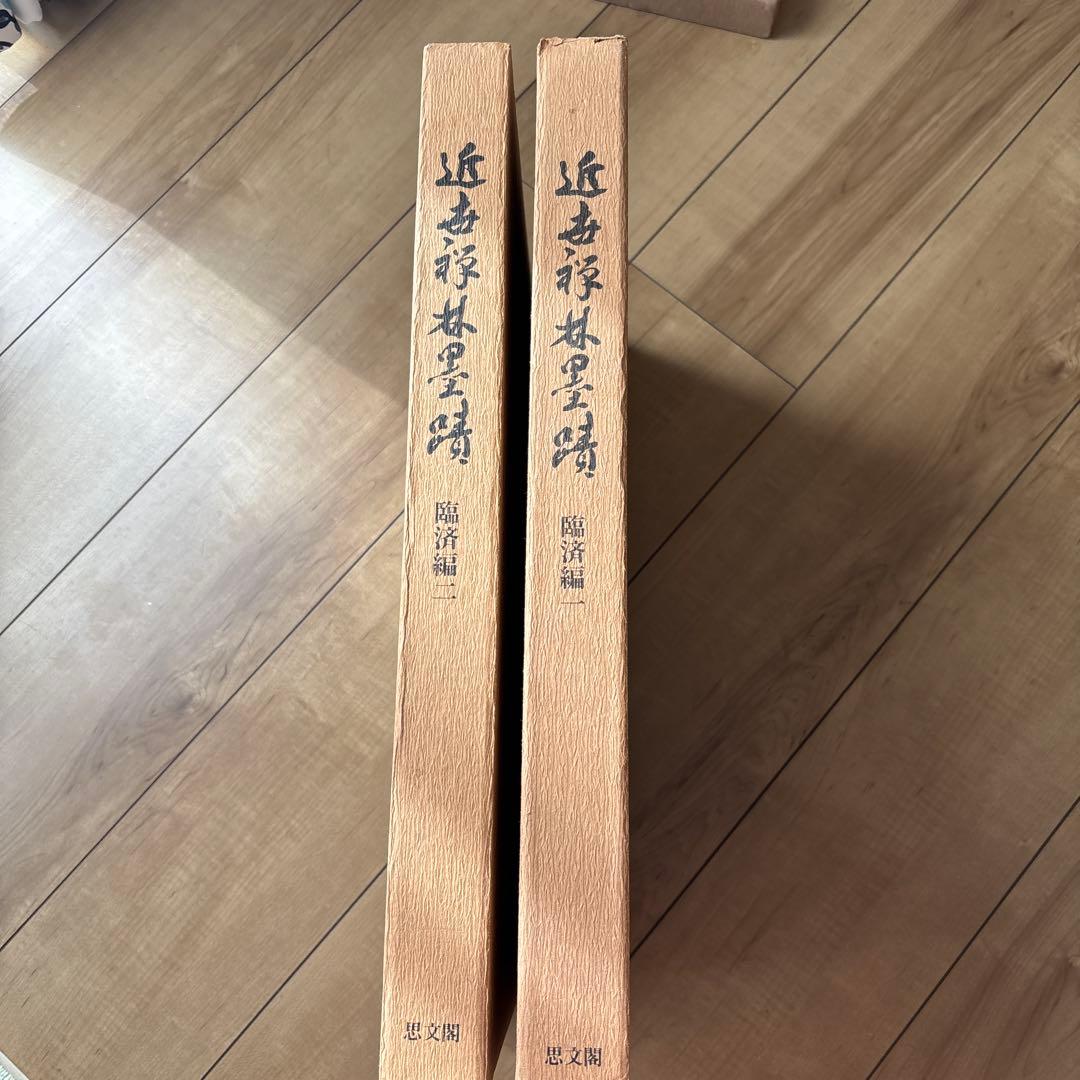 近世禅林墨蹟
臨済編一
思文閣
近世禅林墨蹟
臨済編二
思文閣